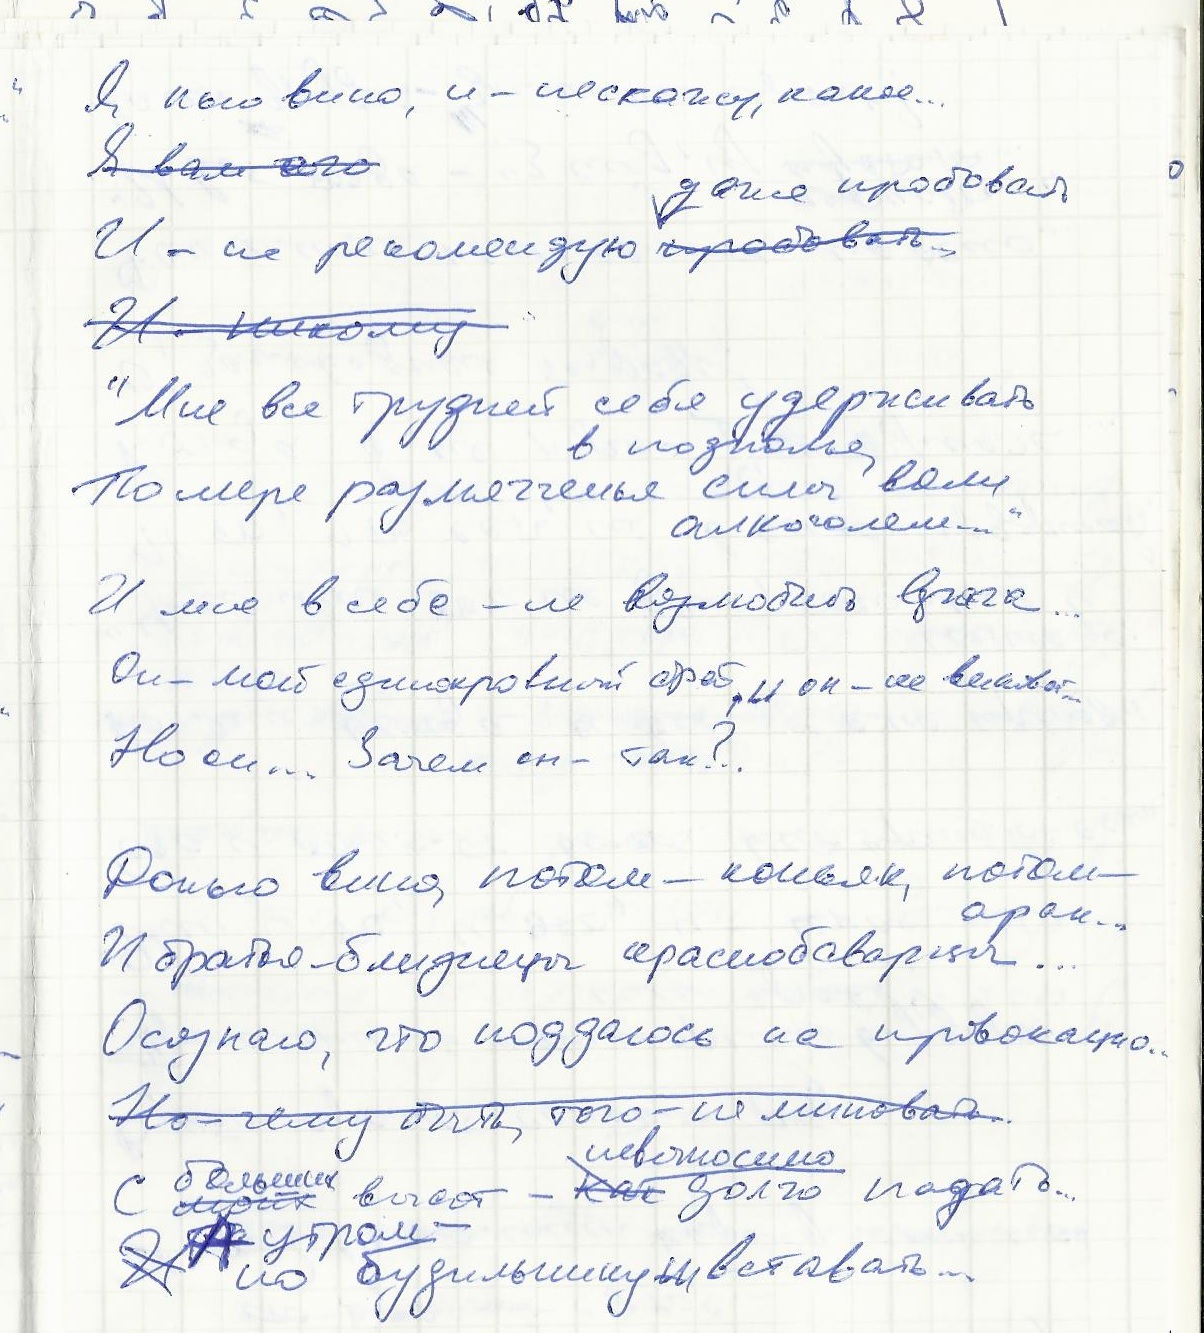 Я пью вино, и – не скажу, какое...
Я вам его
даже пробовать
И – не рекомендую пробовать...
И – никому
"Мне все трудней себя удерживать
в подполье,
По мере размягченья силы воли
алкоголем..."
И мне в себе – не возлюбить врага...
Он – мой единокровный брат, и он – не виноват...
Но он... Зачем он – так?..
Допью вино, потом – коньяк, потом –
арак...
И братья-близнецы краснобаварцы...
Осознаю, что поддаюсь на провокацию..
Но – чему быть, того – не миновать...
невыносимо
больших
С высот – как долго падать...
А утром –
И по будильнику вставать...